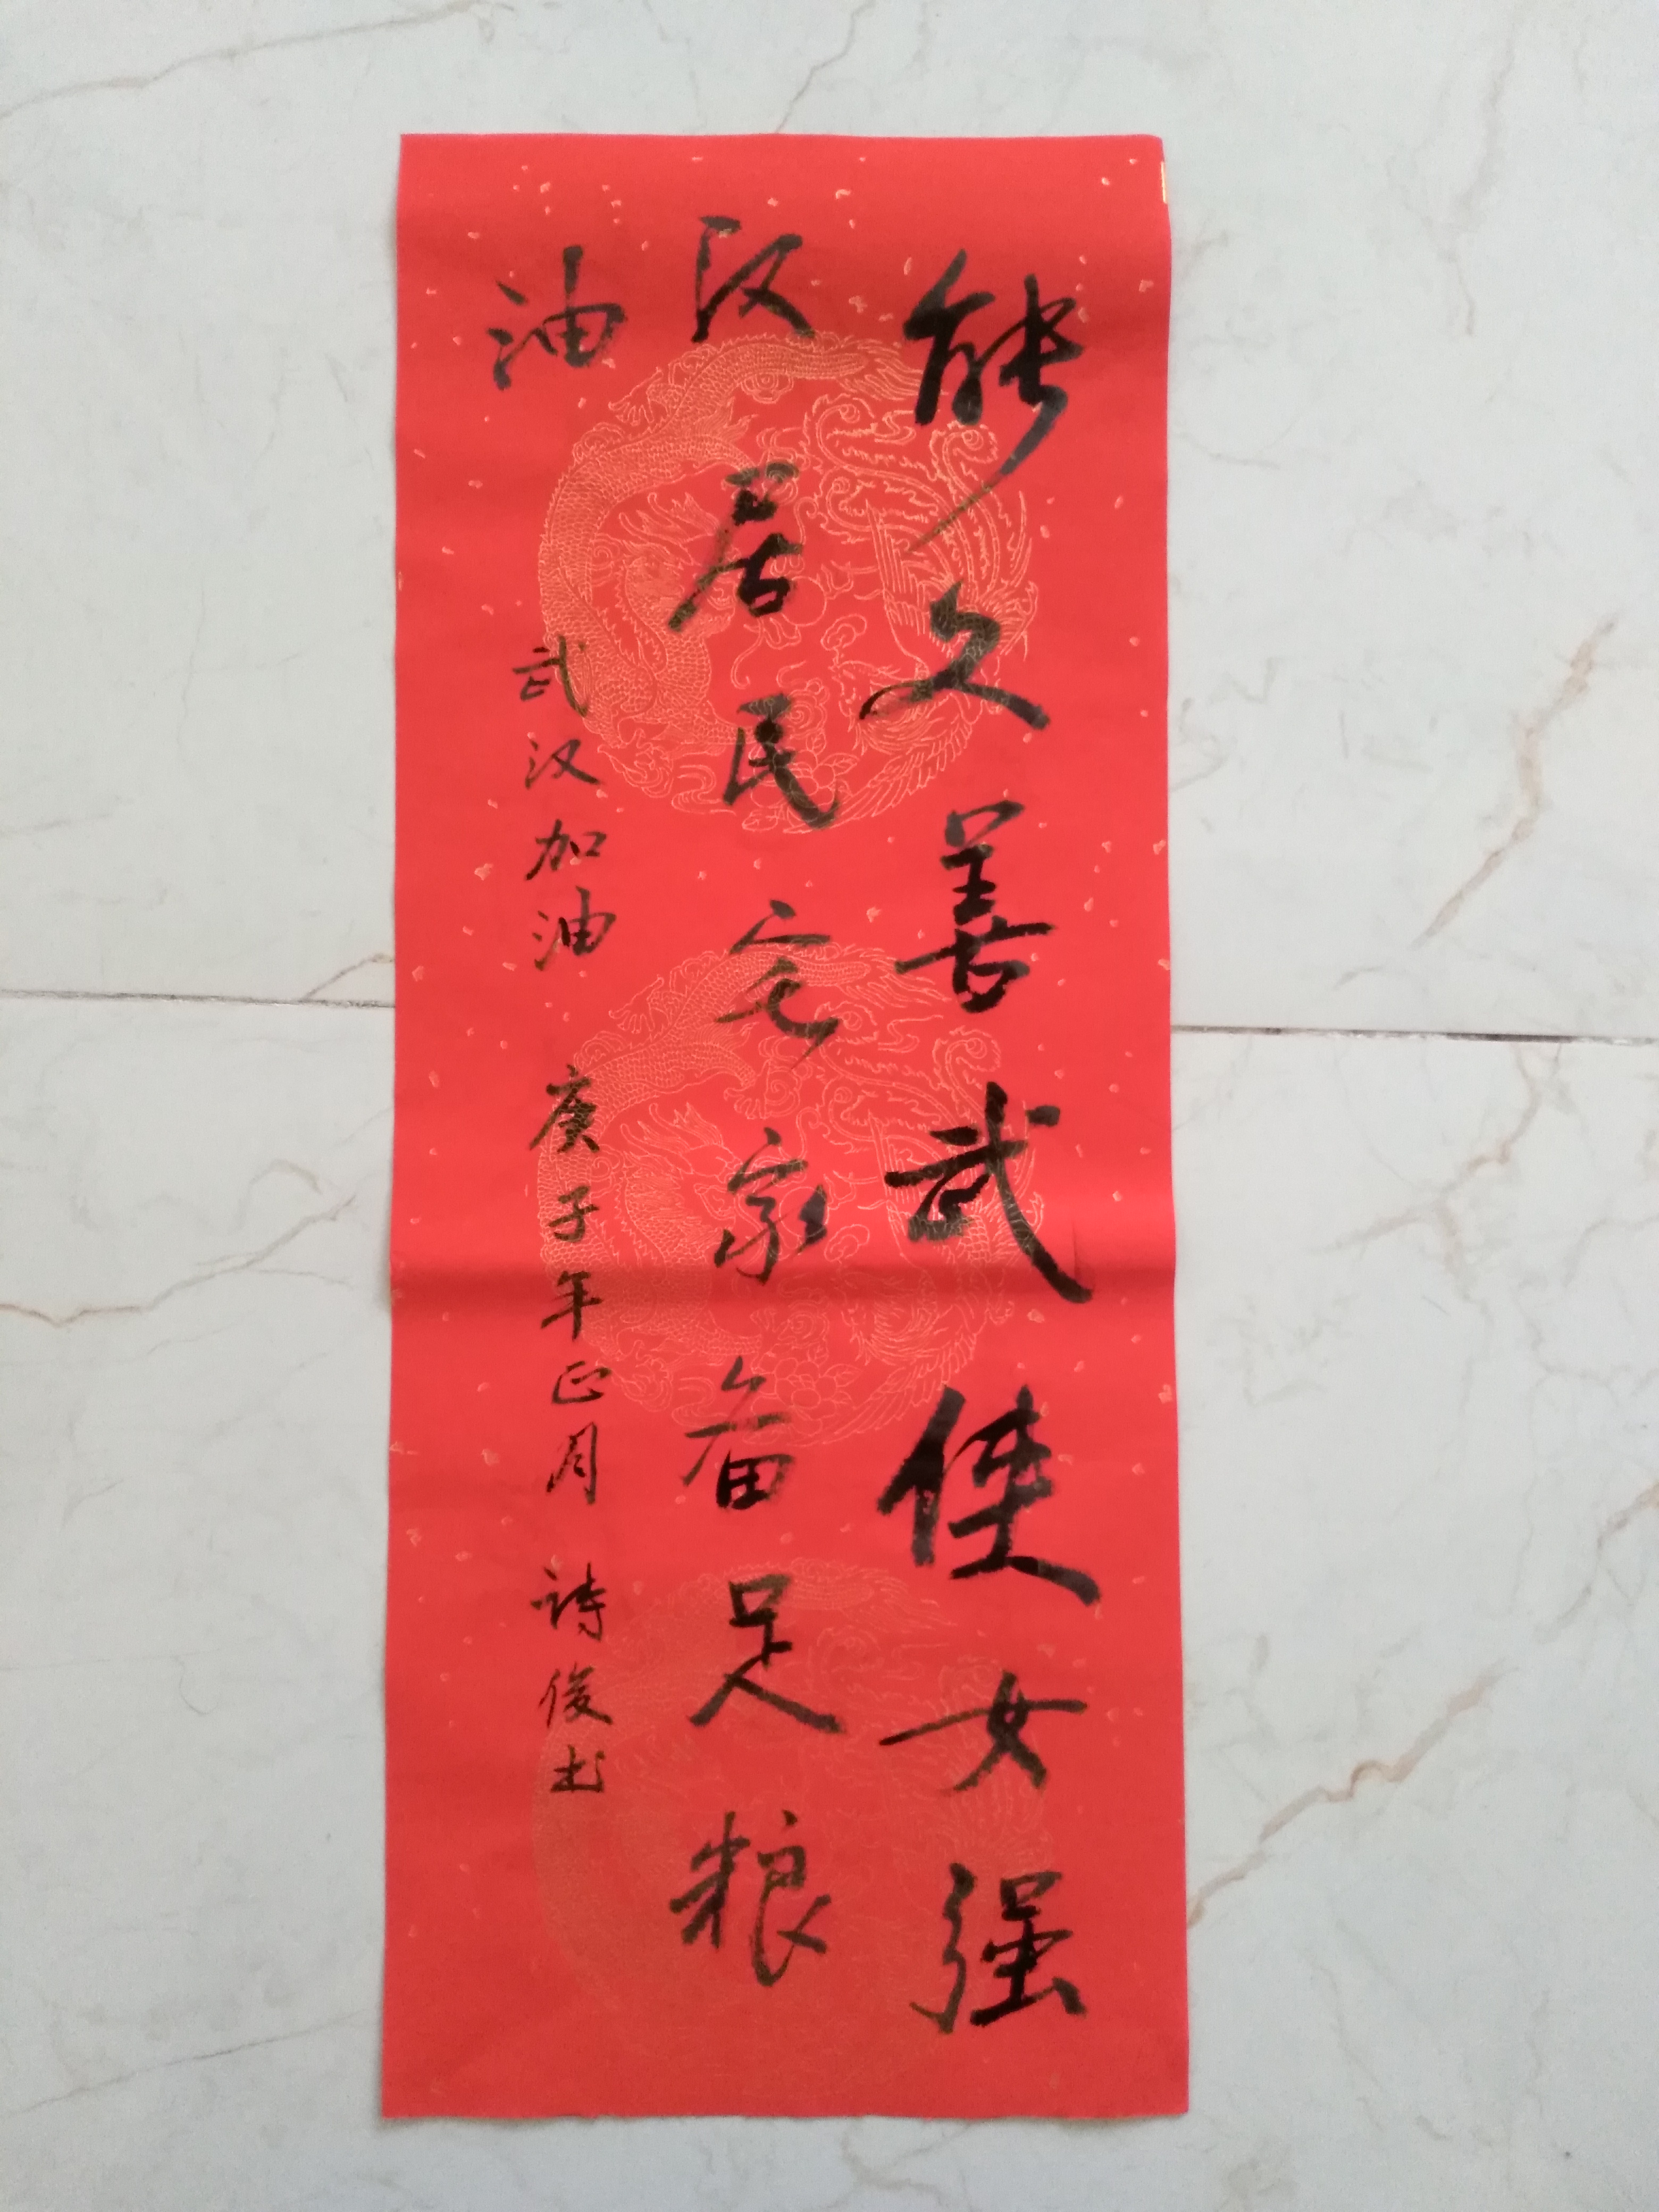 能文善武使女强
汉居民宅家备足粮
油
武汉加油 庚子年正月 诗俊书